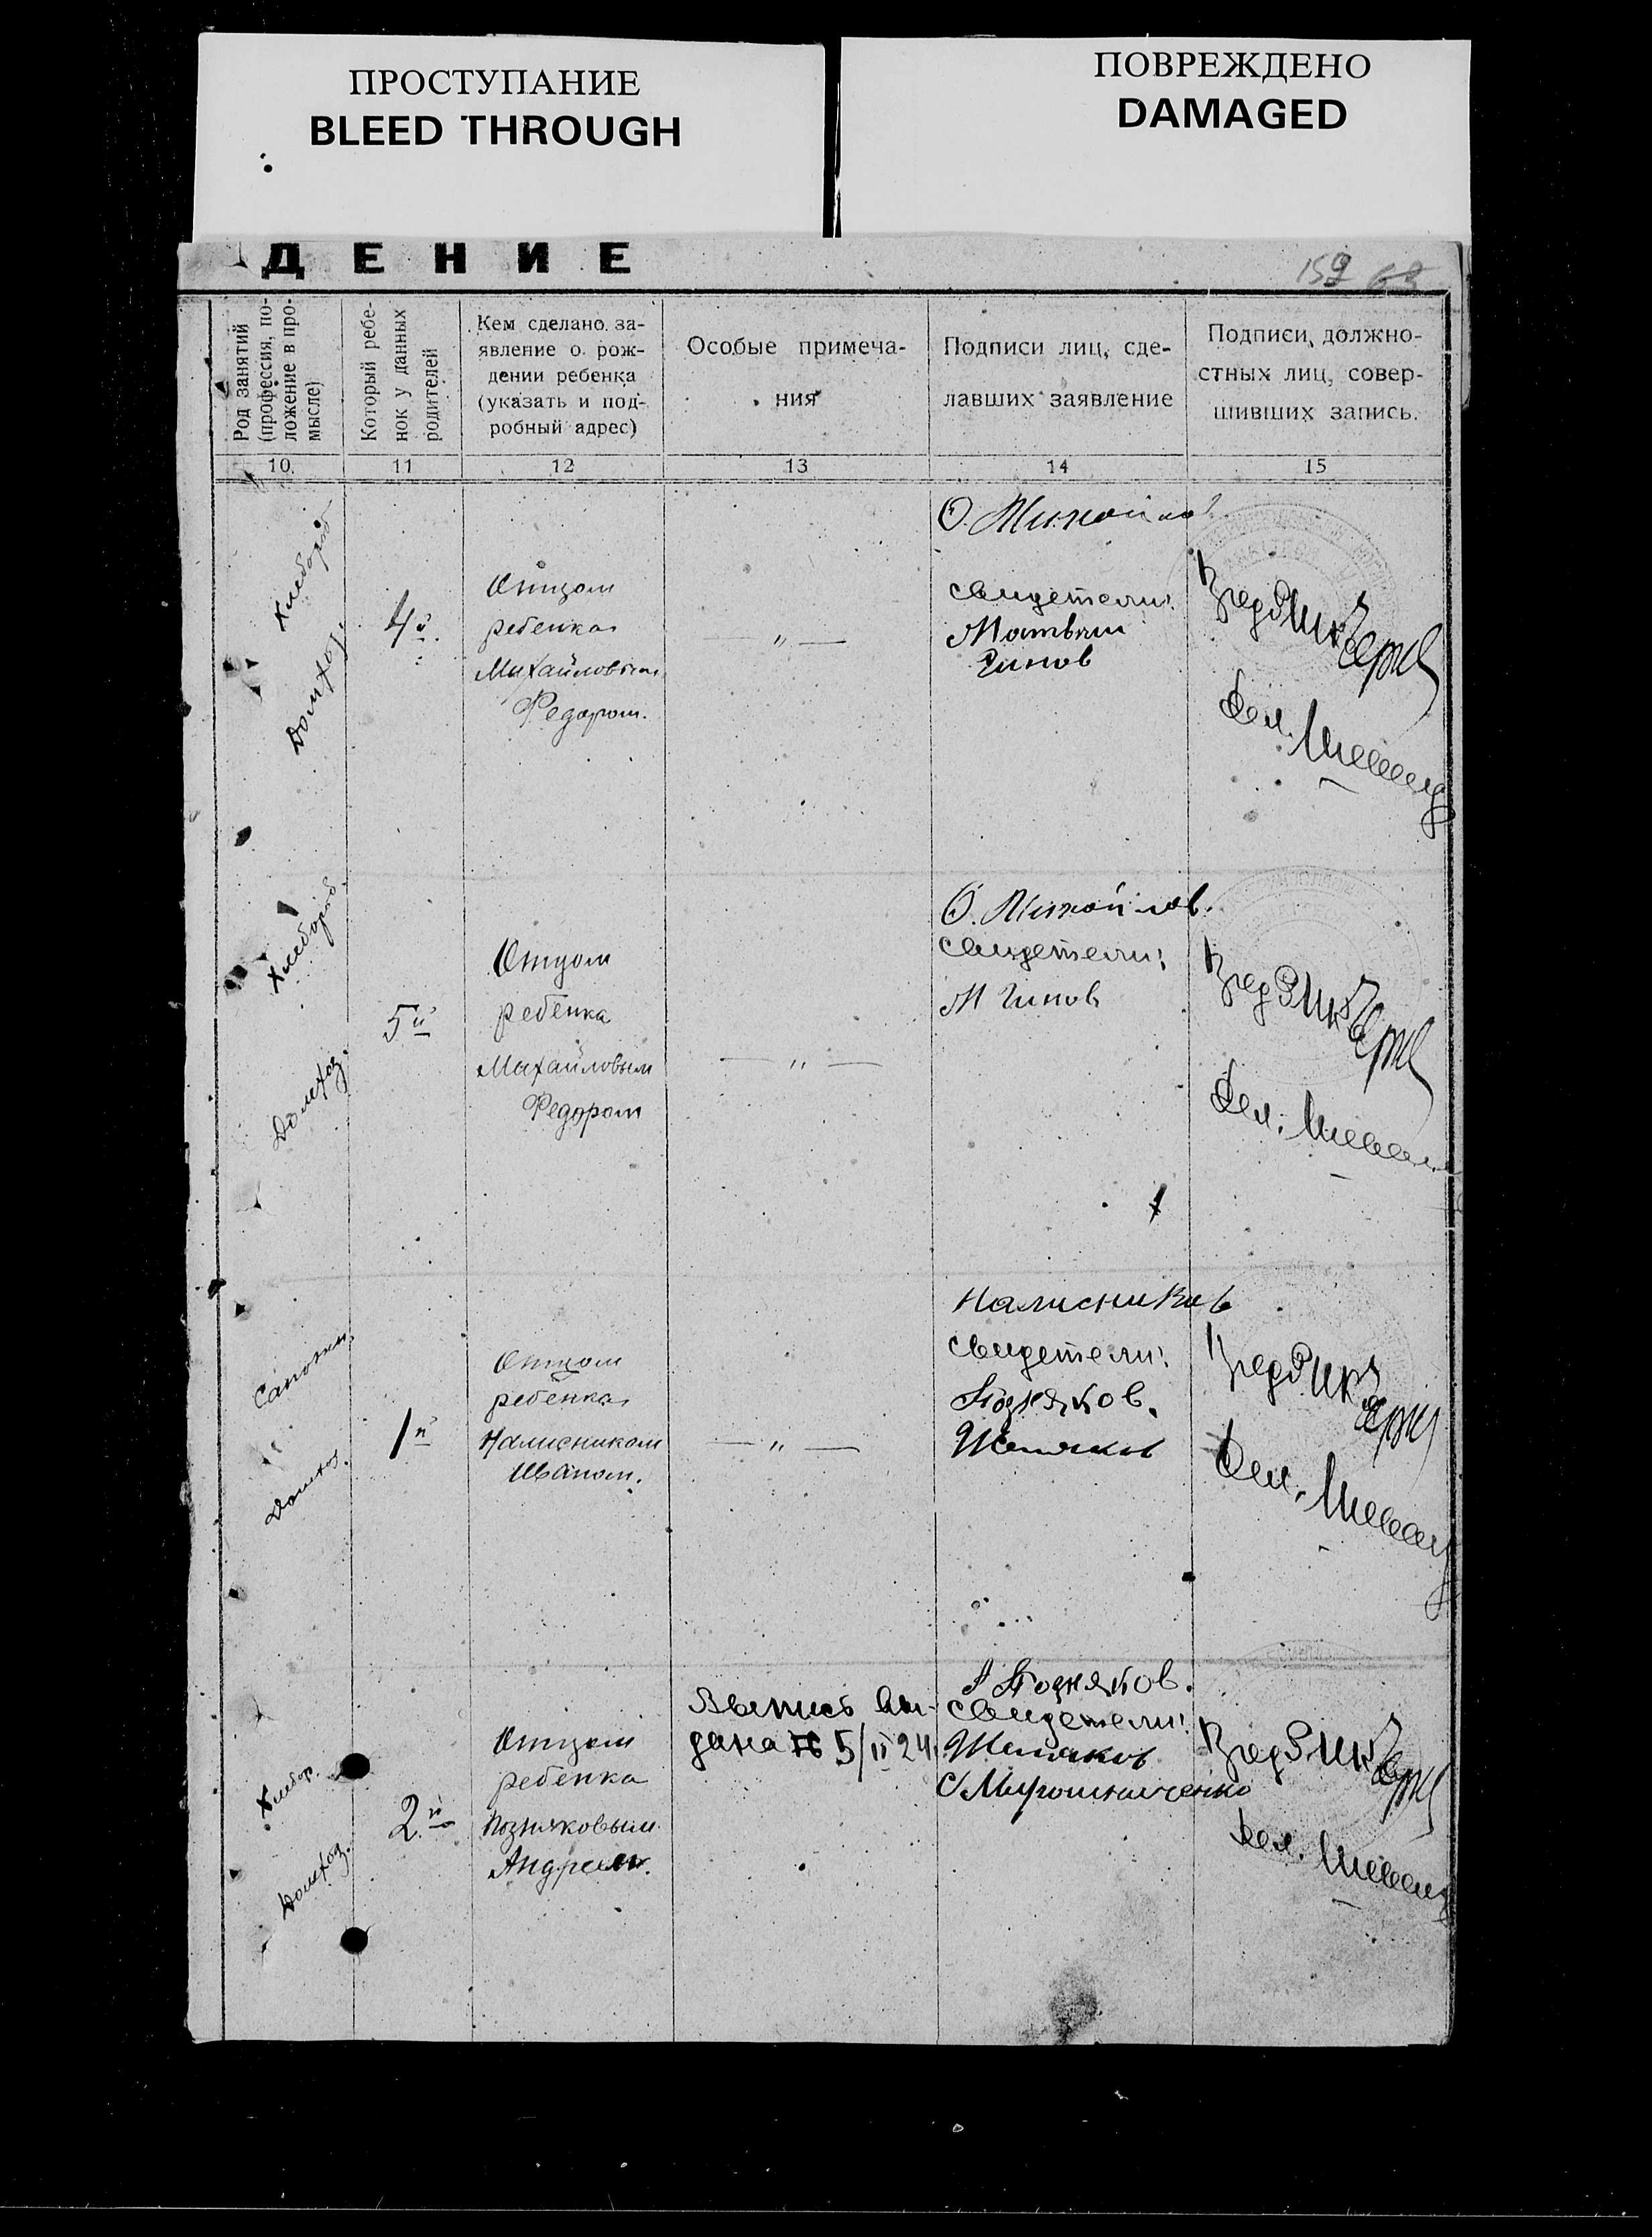 ПРОСТУПАНИЕ
BLEED THROUGH
ПОВРЕЖДЕНО
DAMAGED
ДЕНИЕ
159 63
Род занятий
(профессия, по-
ложение в про-
мысле)
Который ребе-
нок у данных
родителей
Кем сделано за-
явление о рож-
дении ребенка
(указать и под-
робный адрес)
Особые примеча-
ния
Подписи лиц, сде-
лавших заявление
Подписи должно-
стных лиц, совер-
шивших запись.
10
11
12
13
14
15
Хлебороб
Домхоз.
4й
Отцом
ребенка
Михайловым
Федором.
— „ —
О. Михайлов
свидетели:
Матвей
Чинов
Хлебороб.
Домхоз.
5й
Отцом
ребенка
Михайловым
Федором
— „ —
О. Михайлов.
свидетели:
М Чинов
Сапожн.
Домхоз.
1й
Отцом
ребенка
Налисником
Иваном.
— „ —
Налисников
свидетели:
Позняков.
Хлебор.
Домхоз.
2й
Отцом
ребенка
Позняковым
Андреем.
Выпись вы-
дана 5/II 24.
А Позняков.
свидетели:
С Мирошниченко